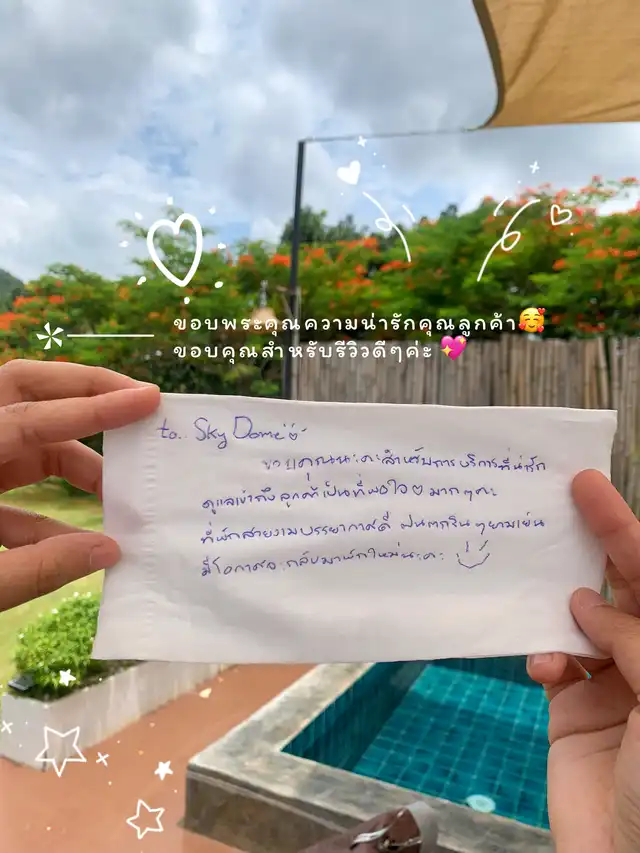 ขอบพระคุณความน่ารักคุณลูกค้า🥰
ขอบคุณสำหรับรีวิวดีๆค่ะ 💖
to.. Sky Dome
ขอบคุณนะคะสำหรับการบริการที่น่ารัก
ดูแลเข้าถึงลูกค้าเป็นที่พอใจ♡มากๆคะ
ที่พักสวยงามบรรยากาศดี ฝนตกรินๆยามเย็น
มีโอกาสจะกลับมาพักใหม่นะคะ